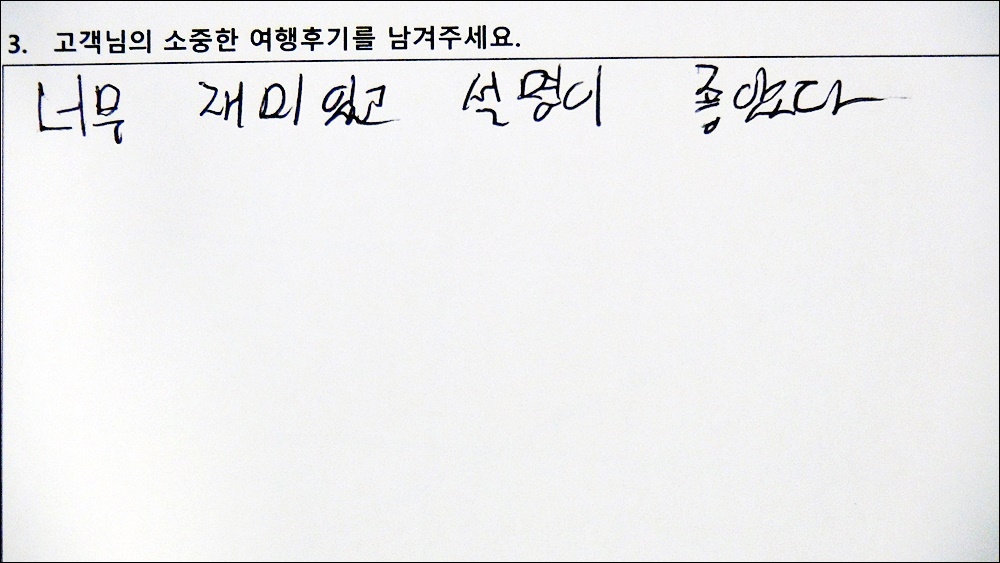 3. 고객님의 소중한 여행후기를 남겨주세요.
너무 재미있고 설명이 좋았다